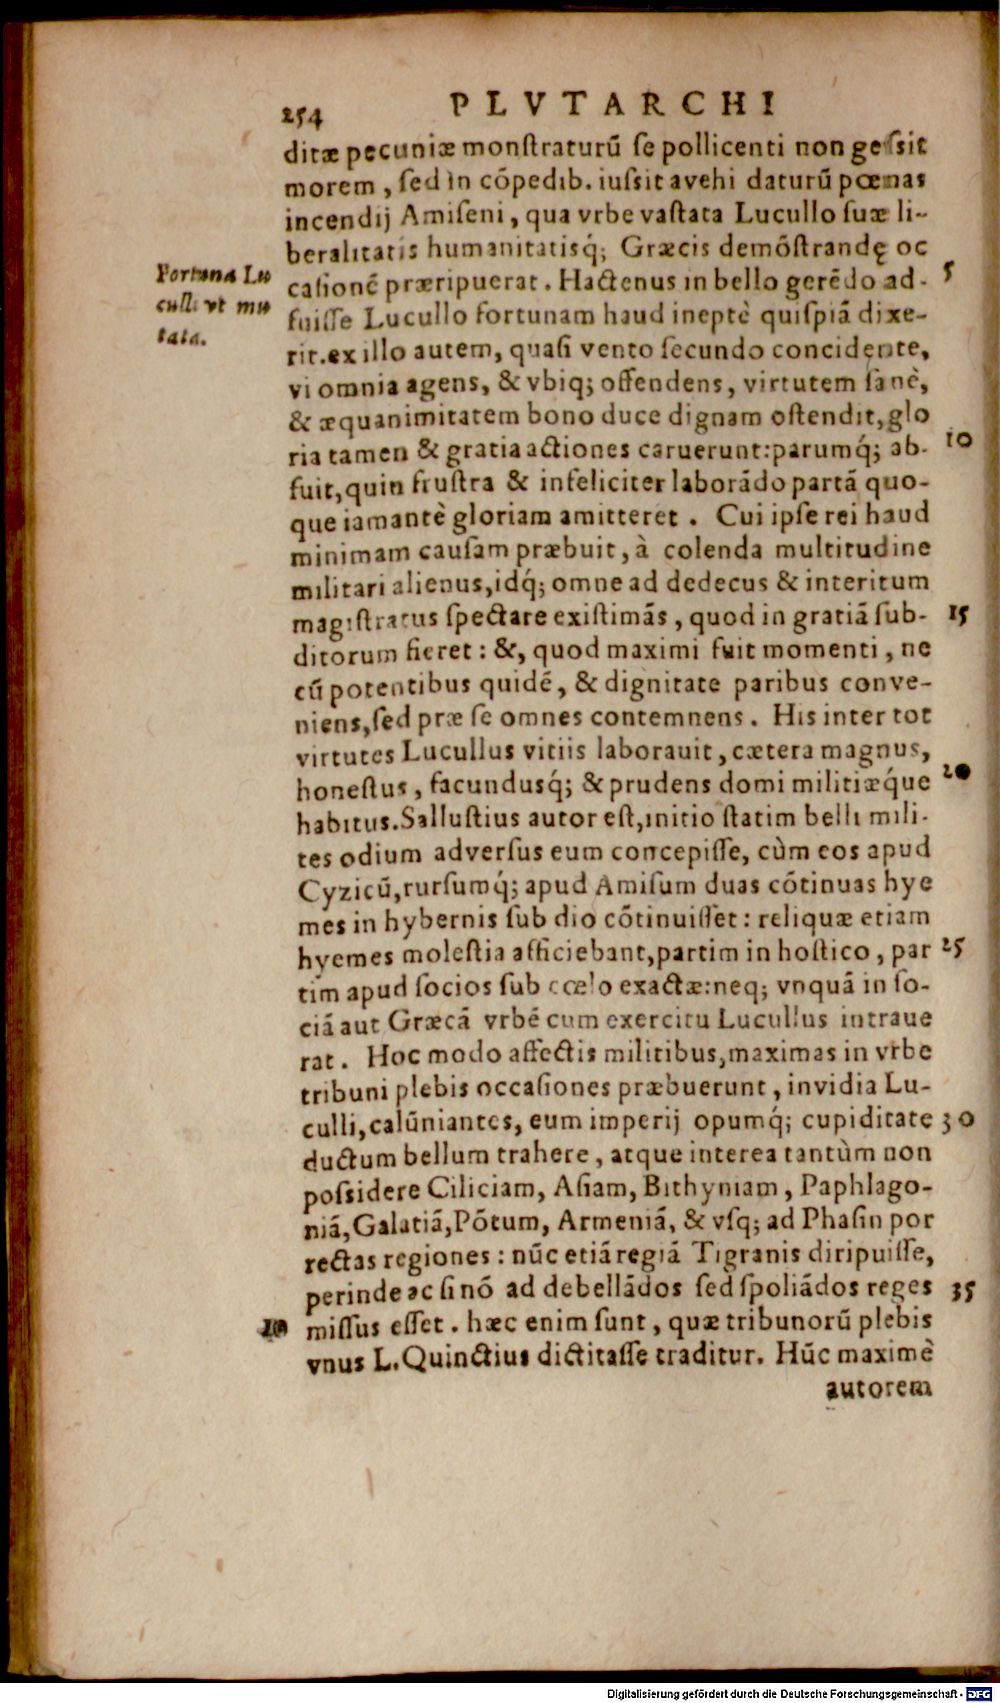 254 PLVTARCHI
ditæ pecuniæ monſtraturũ ſe pollicenti non geſsit
morem, ſed in cõpedib. iuſsit avehi daturũ pœnas
incendij Amiſeni, qua vrbe vaſtata Lucullo ſuæ li-
beralitatis humanitatisq́; Græcis demõſtrandę oc
caſionẽ præripuerat. Hactenus in bello gerẽdo ad-
fuiſſe Lucullo fortunam haud ineptè quiſpiã dixe-
rit. ex illo autem, quaſi vento ſecundo concidente,
vi omnia agens, & vbiq; offendens, virtutem ſanè,
& æquanimitatem bono duce dignam oſtendit, glo
ria tamen & gratia actiones caruerunt: parumq́; ab-
fuit, quin fruſtra & infeliciter laborãdo partã quo-
que iam antè gloriam amitteret. Cui ipſe rei haud
minimam cauſam præbuit, à colenda multitudine
militari alienus, idq́; omne ad dedecus & interitum
magiſtratus ſpectare exiſtimãs, quod in gratiã ſub-
ditorum fieret: &, quod maximi fuit momenti, ne
cũ potentibus quidẽ, & dignitate paribus conve-
niens, ſed præ ſe omnes contemnens. His inter tot
virtutes Lucullus vitiis laborauit, cætera magnus,
honeſtus, facundusq́; & prudens domi militiæq́ue
habitus. Salluſtius autor eſt, initio ſtatim belli mili-
tes odium adverſus eum concepiſſe, cùm eos apud
Cyzicũ, rurſumq́; apud Amiſum duas cõtinuas hye
mes in hybernis ſub dio cõtinuiſſet: reliquæ etiam
hyemes moleſtia afficiebant, partim in hoſtico, par
tim apud ſocios ſub cœlo exactæ: neq; vnquã in ſo-
ciã aut Græcã vrbẽ cum exercitu Lucullus intraue
rat. Hoc modo affectis militibus, maximas in vrbe
tribuni plebis occaſiones præbuerunt, invidia Lu-
culli, calũniantes, eum imperij opumq́; cupiditate
ductum bellum trahere, atque interea tantùm non
poſsidere Ciliciam, Aſiam, Bithyniam, Paphlago-
niã, Galatiã, Põtum, Armeniã, & vſq; ad Phaſin por
rectas regiones: nũc etiã regiã Tigranis diripuiſſe,
perinde ac ſi nõ ad debellãdos ſed ſpoliãdos reges
miſſus eſſet. hæc enim ſunt, quæ tribunorũ plebis
vnus L. Quinctius dictitaſſe traditur. Hũc maximè
autorem
Fortuna Lu
culli vt mu
tata.
5
10
15
20
25
30
35
Digitalisierung gefördert durch die Deutsche Forschungsgemeinschaft - DFG